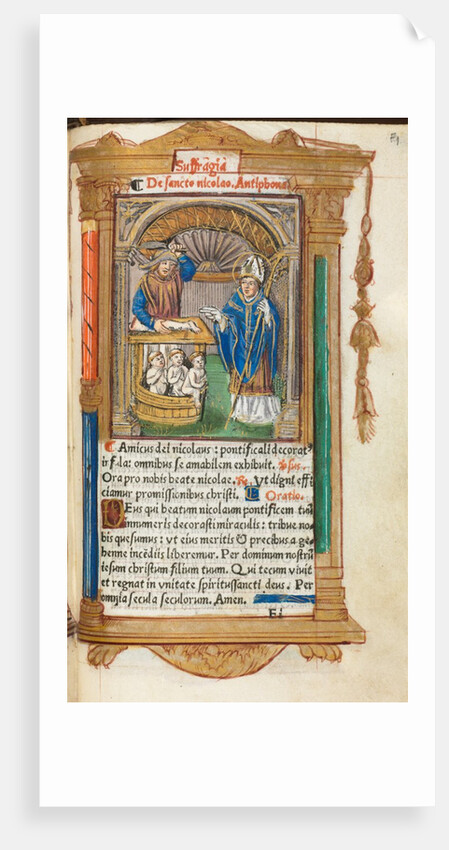 E1
Suffragia
De sancto nicolao. Antiphona
Amicus dei nicolaus: pontificali decorat⁹
īfula: omnibus se amabilem exhibuit. ℣sus.
Ora pro nobis beate nicolae. ℞. Ut digni effi
ciamur promissionibus christi. Oratio.
Deus qui beatum nicolaum pontificem tuū
innumeris decorasti miraculis: tribue no
bis quesumus: ut eius meritis & precibus a ge
henne īcēdiis liberemur. Per dominum nostrū
iesum christum filium tuum. Qui tecum vivit
et regnat in unitate spiritussancti deus. Per
omnia secula seculorum. Amen.
E i